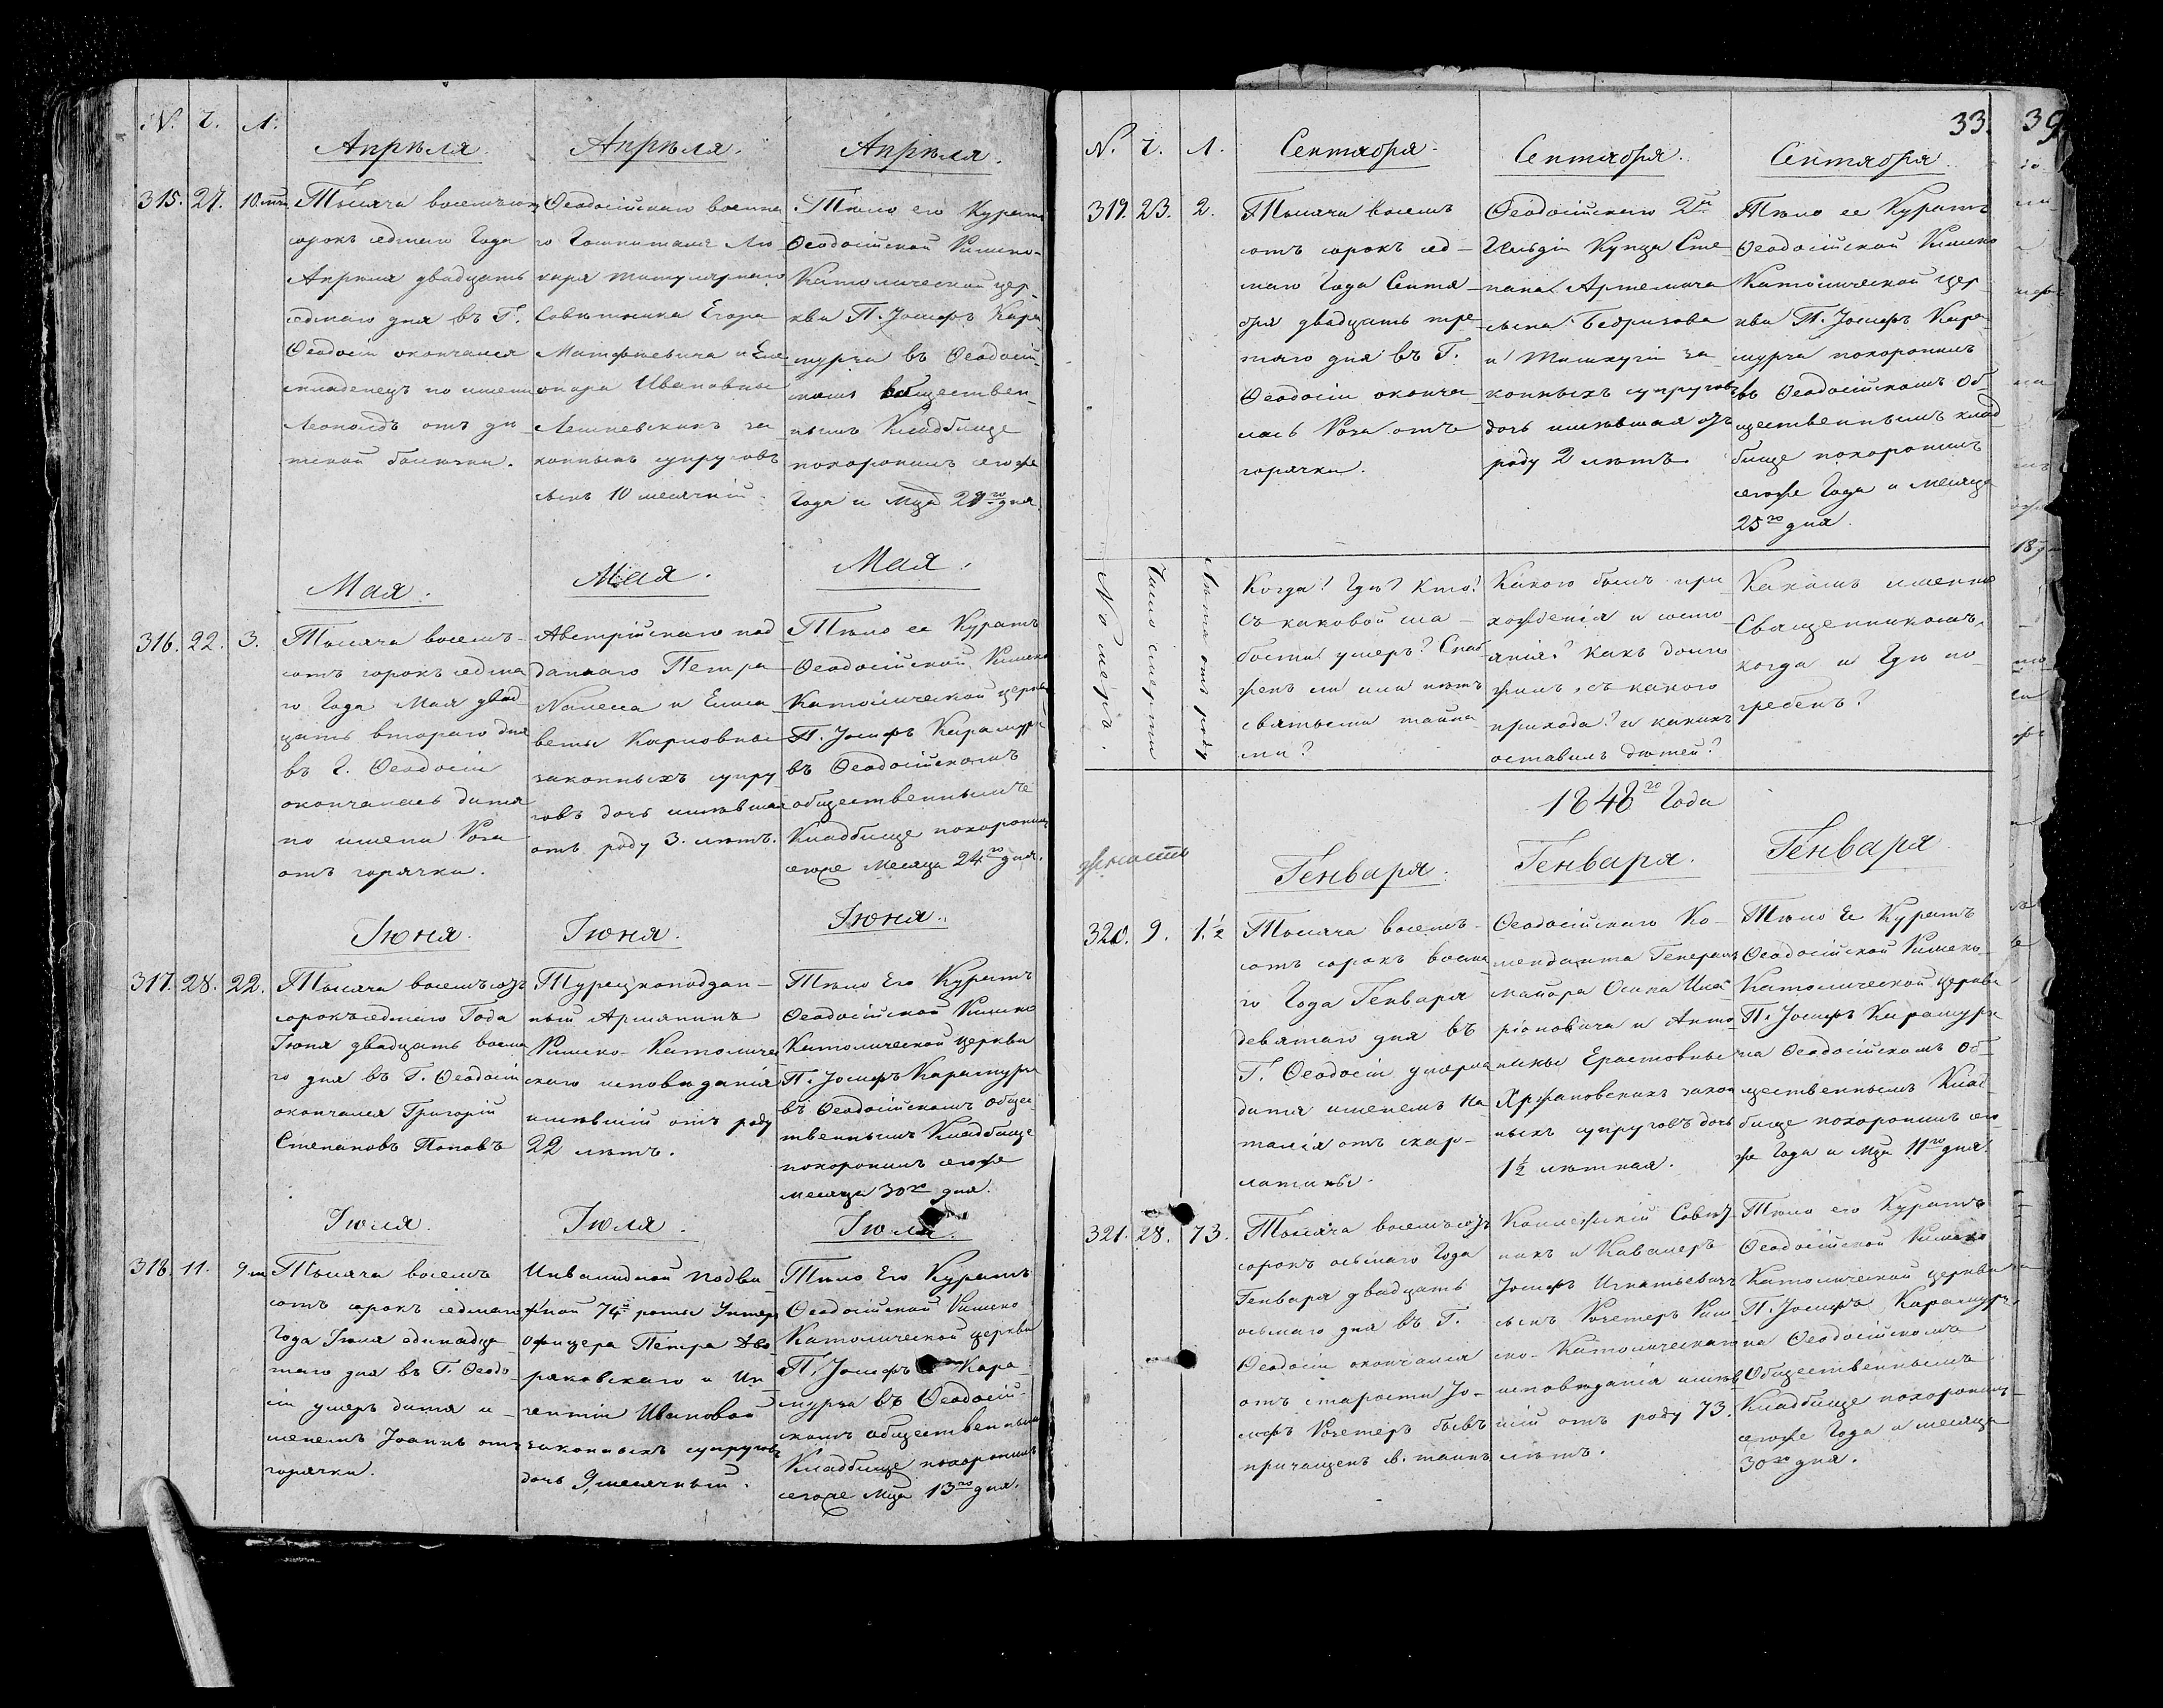 N. Ч. Л.
Апрѣля. Апрѣля. Апрѣля.
315. 27. 10. мѣс.
Тысяча восемьсотъ
сорокъ седмаго Года
Апрѣля двадцать
седмаго дня въ Г.
Ѳеодосіи окончался
младенецъ по имени
Леопольдъ отъ дѣ
тской болѣзни.
Ѳеодосійскаго военна
го Гошпиталя Лѣ
каря титулярнаго
Совѣтника Егора
Матфѣевича и Еле
оноры Ивановны
за
конныхъ супруговъ
сынъ 10 месячній.
Тѣло его Куратъ
Ѳеодосійской Римско-
Католической цер
кви П. Іосифъ Кара
мурза въ Ѳеодосій
скомъ обществен
нымъ Кладбище
похоронилъ сегоже
Года и Мца 29го дня.
Мая. Мая. Мая.
316. 22. 3.
Тысяча восемь-
сотъ сорокъ седма
го Года Мая двад
цать втораго дня
въ Г. Ѳеодосіи
окончалась дитя
по имени Роза
отъ горячки.
Австрійскаго под
даннаго Петра
и Елиса
веты Карловны
законныхъ супру
говъ дочь имѣвшая
отъ роду 3. лѣтъ.
Тѣло ее Куратъ
Ѳеодосійской Римско
Католической церкви
П. Іосифъ Карамурза
въ Ѳеодосійскомъ
общественнымъ
Кладбище похоронилъ
сегоже Месяца 24го дня.
Іюня. Іюня. Іюня.
317. 28. 22.
Тысяча восемьсотъ
сорокъ седмаго Года
Іюня двадцать восма
го дня въ Г. Ѳеодосіи
окончался Григорій
Степановъ Поповъ
Турецкоподдан-
ный Армянинъ
Римско-Католиче
скаго исповѣданія
имѣвшій отъ роду
22 лѣтъ.
Тѣло Его Куратъ
Ѳеодосійской Римско
Католической церкви
П. Іосифъ Карамурза
въ Ѳеодосійскомъ обще
твеннымъ Кладбище
похоронилъ сегоже
месяца 30го дня.
Іюля. Іюля. Іюля.
318. 11. 9 м.
Тысяча восемь
сотъ сорокъ седмаго
Года Іюля одинадца
таго дня въ Г. Ѳеодо
сіи умеръ дитя и-
менемъ Іоаннъ отъ
горячки.
Инвалидной подви
жной 74й роты Унтеръ
Офицера Петра Дво
раковскаго и Ин
Ивановой
законныхъ супруговъ
дочь 9 месячный.
Тѣло Его Куратъ
Ѳеодосійской Римско
Католической церкви
П. Іосифъ Кара-
мурза въ Ѳеодосій
скомъ общественнымъ
Кладбище похоронилъ
сегоже Мца 13го дня.
33. 39
N. Ч. Л.
Сентября. Сентября. Сентября.
319. 23. 2.
Тысяча восемь
сотъ сорокъ сед-
маго Года Сентя
бря двадцать тре
тяго дня въ Г.
Ѳеодосіи оконча
лась Роза отъ
горячки.
Ѳеодосійскаго 2й
Гильдіи Купца Сте
пана Артемича
сына
и за
конныхъ супруговъ
дочь имѣвшая отъ
роду 2 лѣтъ.
Тѣло ее Куратъ
Ѳеодосійской Римско
Католической цер
кви П. Іосифъ Кара
мурза похоронилъ
въ Ѳеодосійскомъ Об
щественнымъ клад
бище похоронилъ
сегоже Года и Месяца
25го дня.
Номеръ.
Число смерти
Лѣта отъ роду
Когда? Гдѣ? Кто?
Съ каковой сла-
бости умеръ? Снаб
женъ ли или нѣтъ
святыми тайна
ми?
Какого былъ про
хожденія и состо
янія? Какъ долго
жилъ, съ какого
прихода? и какихъ
оставилъ дѣтей?
Какимъ именно
Священникомъ,
когда и Гдѣ по
гребенъ?
1848го Года
Генваря. Генваря. Генваря
320. 9. 1.½
Тысяча восемь-
сотъ сорокъ восма
го Года Генваря
девятаго дня въ
Г. Ѳеодосіи умерла
дитя именемъ На
талія отъ скар-
латины.
Ѳеодосійскаго Ко-
менданта Генералъ
маіора Осипа Ила
ріоновича и Анто
нины Ерастовны
Хржановскихъ закон
ныхъ супруговъ дочь
1½ лѣтная.
Тѣло Ее Куратъ
Ѳеодосійской Римско
Католической церкви
П. Іосифъ Карамурза
на Ѳеодосійскомъ Об
щественнымъ Клад
бище похоронилъ сего
же Года и Мца 11го дня.
321. 28. 73.
Тысяча восемьсотъ
сорокъ осьмаго Года
Генваря двадцать
осьмаго дня въ Г.
Ѳеодосіи окончался
отъ старости Іо-
сифъ Рочетеръ бывъ
причащенъ св. таинъ
Коллежскій Совѣт
никъ и Кавалеръ
Іосифъ Игнатьевичъ
сынъ Рочетеръ Рим
ско-Католическаго
исповѣданія имѣв
шій отъ роду 73.
лѣтъ.
Тѣло его Куратъ
Ѳеодосійской Римско
Католической церкви
П. Іосифъ Карамурза
на Ѳеодосійскомъ
Общественнымъ
Кладбище похоронилъ
сегоже Года и месяца
30го дня.